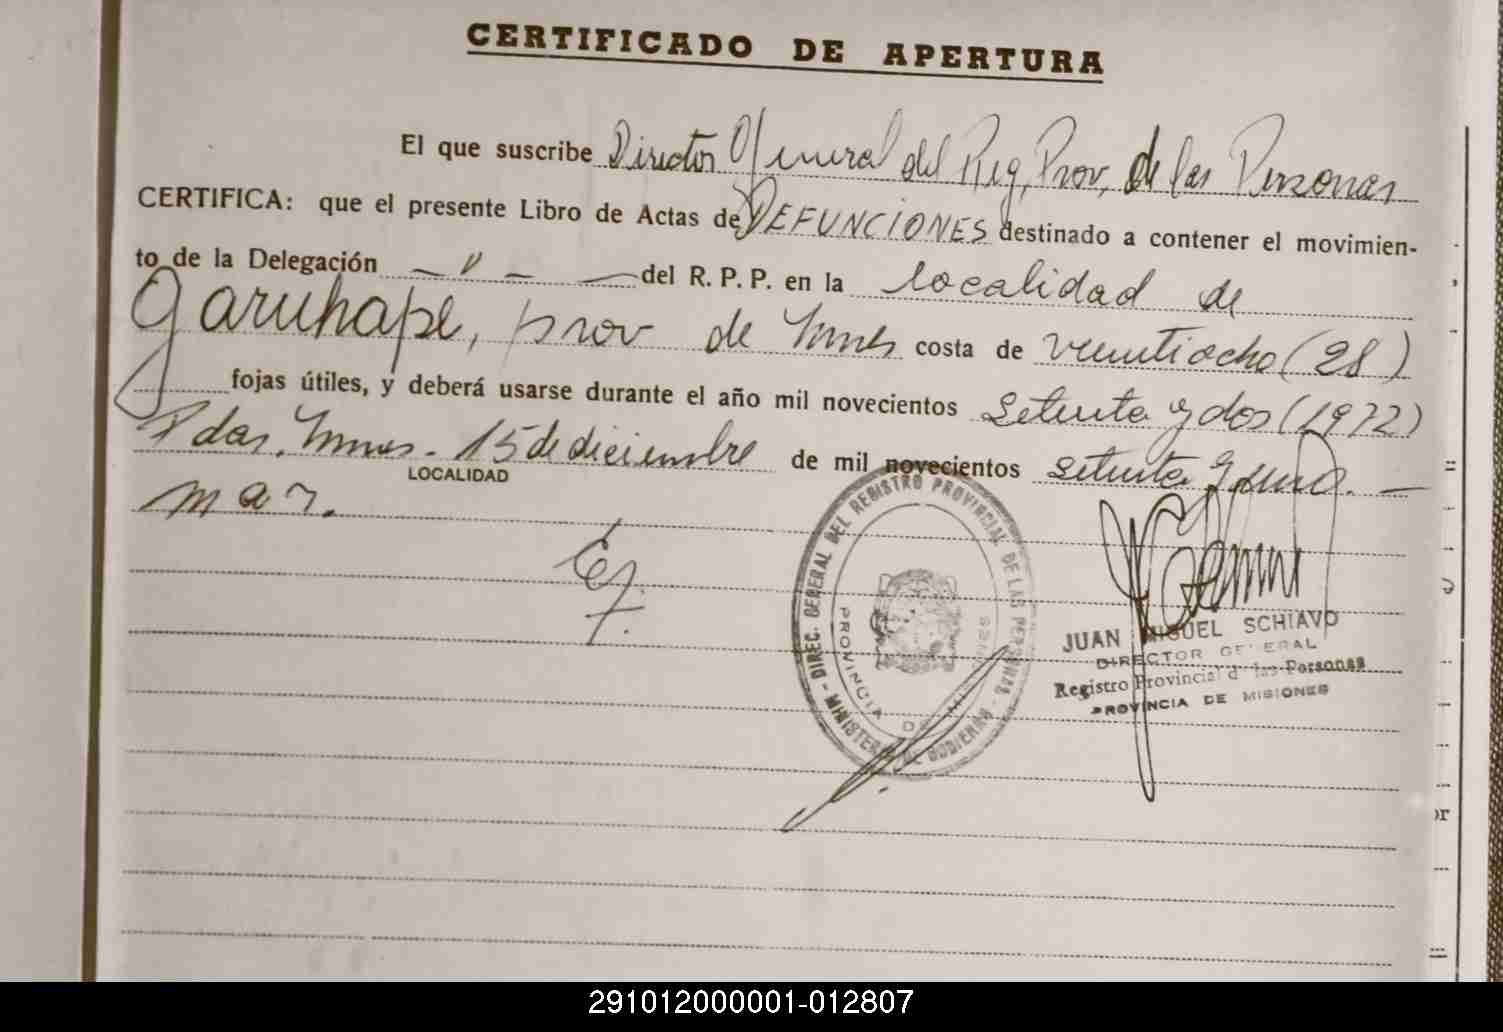 CERTIFICADO DE APERTURA
El que suscribe Director General del Reg. Prov. de las Personas
CERTIFICA: que el presente Libro de Actas de DEFUNCIONES destinado a contener el movimien-
to de la Delegación — " — — del R. P. P. en la localidad de
Garuhape, prov de Mnes costa de veintiocho (28)
fojas útiles, y deberá usarse durante el año mil novecientos setenta y dos (1972)
Pdas. Mnes. - 15 de diciembre de mil novecientos setenta y uno. —
LOCALIDAD
mar.
DIREC. GENERAL DEL REGISTRO PROVINCIAL DE LAS PERSONAS - MINISTERIO DE GOBIERNO -
PROVINCIA DE MISIONES
JUAN MIGUEL SCHIAVO
DIRECTOR GENERAL
Registro Provincial d las Personas
PROVINCIA DE MISIONES
or
291012000001-012807